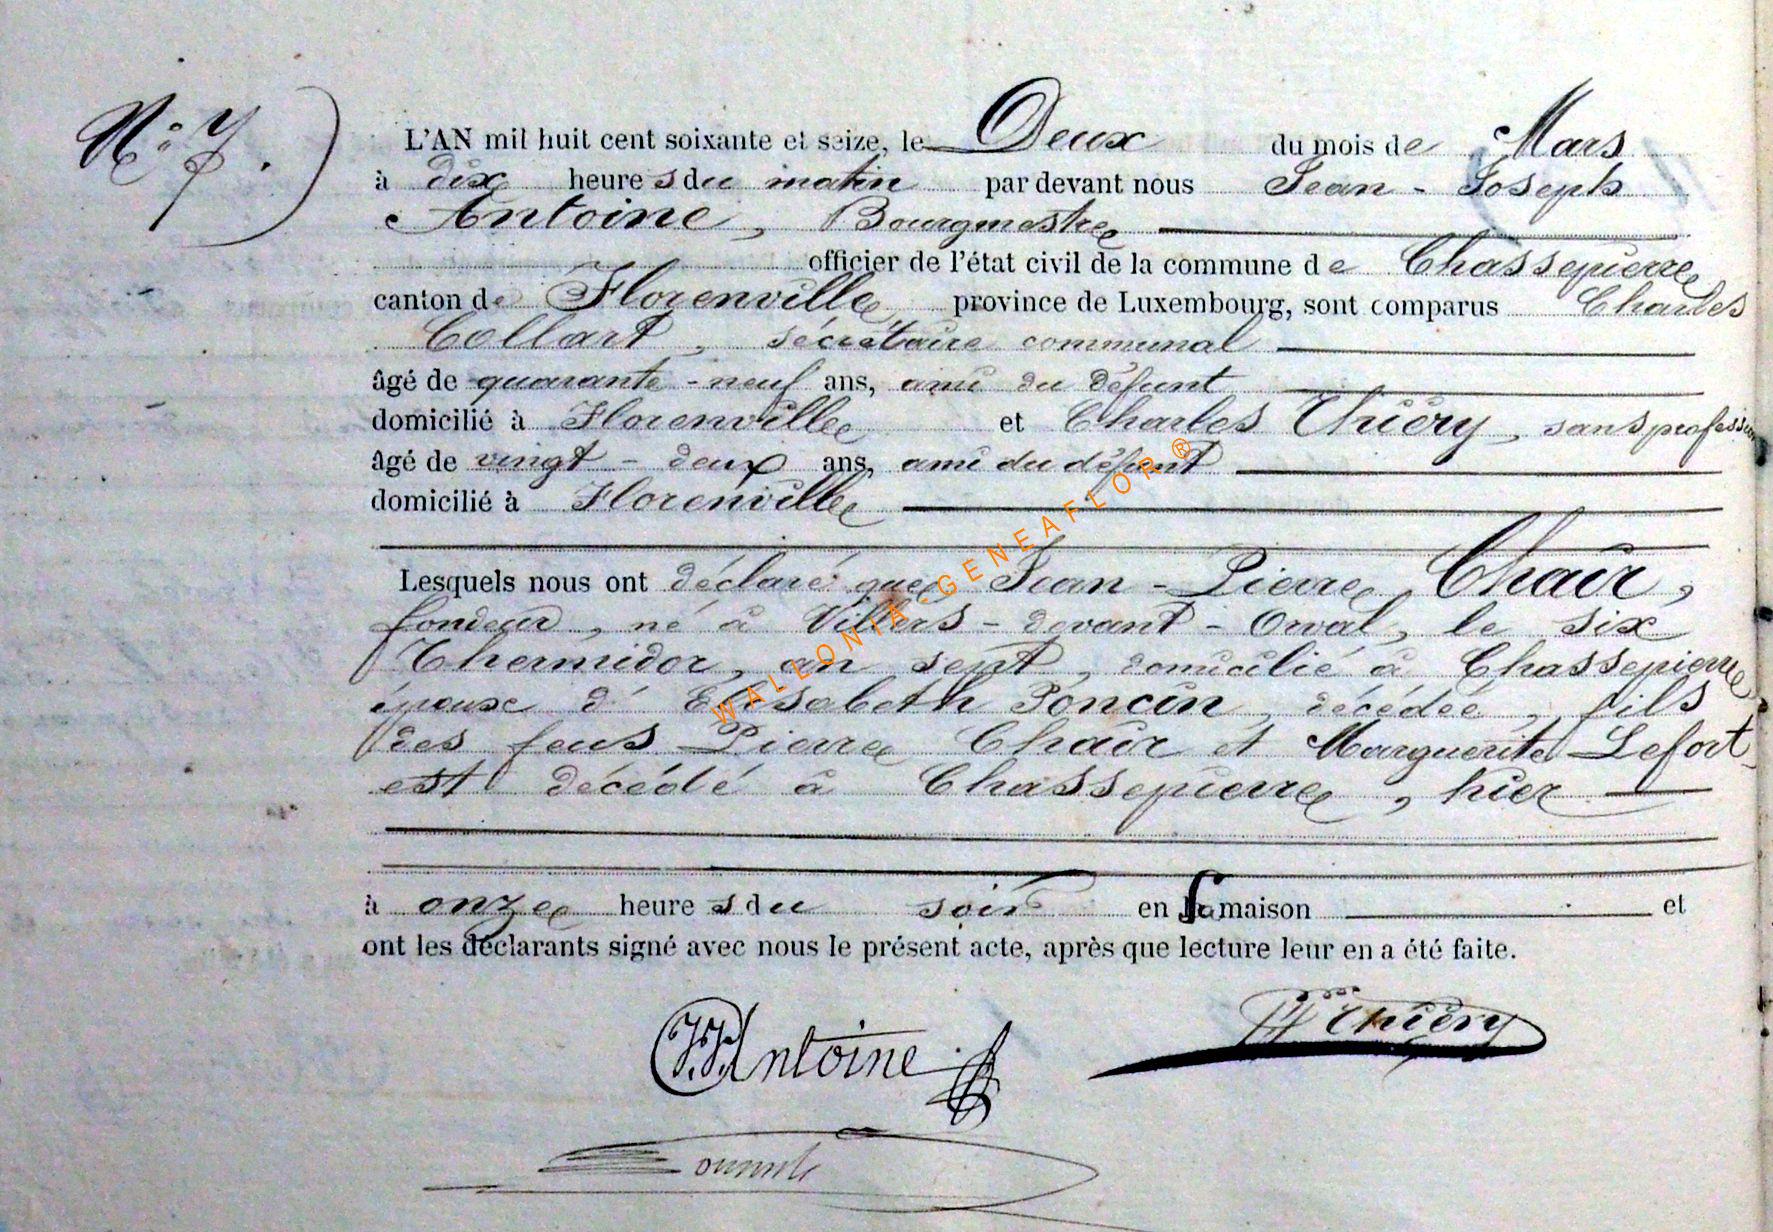 N° 7.
L'AN mil huit cent soixante et seize, le Deux du mois de Mars
à dix heures du matin par devant nous Jean - Joseph
Antoine, Bourgmestre
officier de l'état civil de la commune de Chassepierre
canton de Florenville province de Luxembourg, sont comparus Charles
Collart, sécrétaire communal
âgé de quarante - neuf ans, ami du défunt
domicilié à Florenville et Charles Thiéry, sans profession
âgé de vingt - deux ans, ami du défunt
domicilié à Florenville
Lesquels nous ont déclaré que Jean - Pierre Chair,
fondeur, né à Villers - devant - Orval, le six
Thermidor, an sept, domicilié à Chassepierre
époux d' Elisabeth Poncin, décédée, fils
des feus Pierre Chair et Marguerite Lefort
est décédé à Chassepierre, hier
à onze heures du soir en sa maison et
ont les déclarants signé avec nous le présent acte, après que lecture leur en a été faite.
J.J. Antoine
Thiéry
WALLONIA-GENEAFLOR®